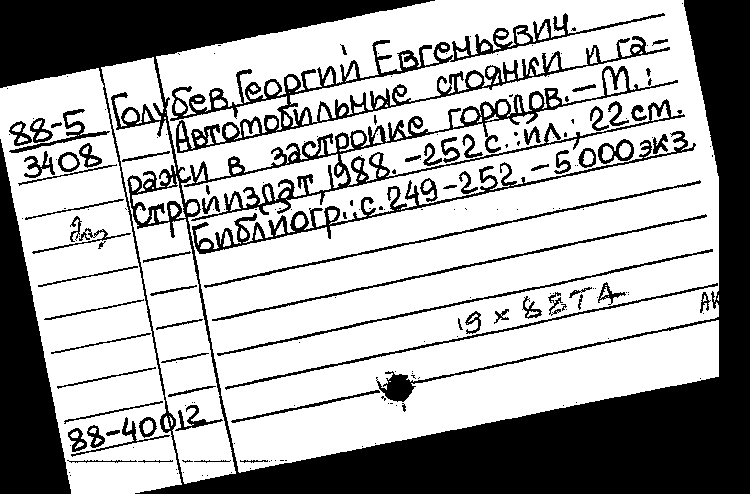 88-5
3408
Голубев, Георгий Евгеньевич.
Автомобильные стоянки и га-
ражи в застройке городов. – М.:
Стройиздат, 1988. – 252 с.: ил.; 22 см.
Библиогр.: с. 249-252. – 5000 экз.
19 × 88 ТА
АК
88-40012